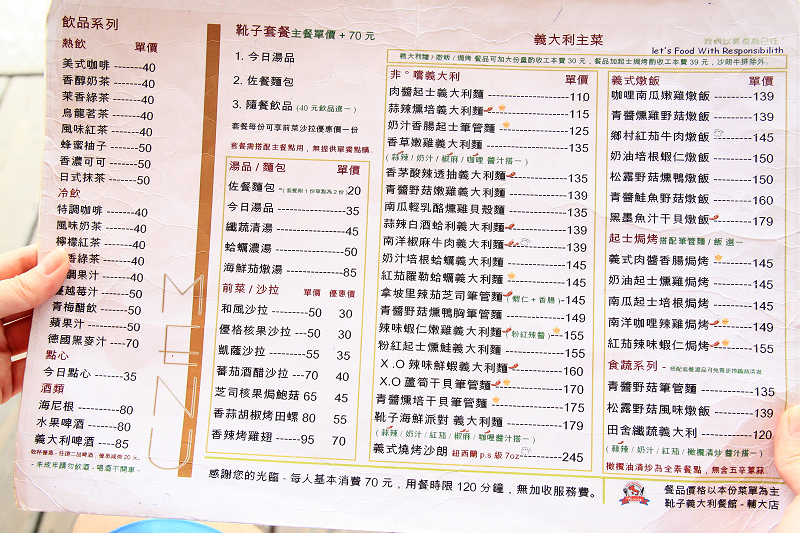 飲品系列
熱飲 單價
美式咖啡 --------40
香醇奶茶 --------40
茉香綠茶 --------40
烏龍茗茶 --------40
風味紅茶 --------40
蜂蜜柚子 --------50
香濃可可 --------50
日式抹茶 --------50
冷飲
特調咖啡 --------40
風味奶茶 --------40
檸檬紅茶 --------40
香綠茶 --------40
調果汁 --------40
越莓汁 --------50
青梅醋飲 --------50
蘋果汁 --------50
德國黑麥汁 ----70
點心
今日點心 ------35
酒類
海尼根 ---------80
水果啤酒 ------80
義大利啤酒 ----85
- 未成年請勿飲酒 - 喝酒不開車 -
MENU
靴子套餐 主餐單價 + 70 元
1. 今日湯品
2. 佐餐麵包
3. 隨餐飲品 (40 元飲品選一)
套餐每份可享前菜沙拉優惠價一份
套餐需搭配主餐點用，無提供單獨點購
湯品 / 麵包 單價
佐餐麵包 -(套餐附 1 份單點為 2 份)20
今日湯品 ------------35
纖蔬清湯 ------------45
蛤蠣濃湯 ------------50
海鮮茄燉湯 ---------85
前菜 / 沙拉 單價 優惠價
和風沙拉 -------50 30
優格核果沙拉 ---50 30
凱薩沙拉 -------55 35
蕃茄酒醋沙拉 ---70 40
芝司核果焗鮑菇 65 45
香蒜胡椒烤田螺 80 55
香辣烤雞翅 ------95 70
義大利主菜
let's Food With Responsibilith
義大利麵 / 燉飯 / 焗烤 餐品可加大份量酌收工本費 30 元，餐品加起士焗烤酌收工本費 39 元，沙朗牛排除外。
非°嚐義大利 單價
肉醬起士義大利麵 -------------110
蒜辣燻培義大利麵 -------------115
奶汁香腸起士筆管麵 -----------125
香草嫩雞義大利麵 -------------135
(蒜辣 / 奶汁 / 椒麻 / 咖哩 醬汁搭一)
香茅酸辣透抽義大利麵 ---------135
青醬野菇嫩雞義大利麵 ---------135
南瓜輕乳酪燻雞貝殼麵 ---------135
蒜辣白酒蛤利義大利麵 ---------139
南洋椒麻牛肉義大利麵 ---------139
奶汁培根蛤蠣義大利麵 ---------145
紅茄羅勒蛤蠣義大利麵 ---------145
拿坡里辣茄芝司筆管麵 (蝦仁 + 香腸)-145
青醬野菇燻鴨胸筆管麵 ---------149
辣味蝦仁嫩雞義大利麵 (粉紅辣醬)---155
粉紅起士燻鮭義大利麵 ---------155
X.O 辣味鮮蝦義大利麵 ---------160
X.O 蘆筍干貝筆管麵 -----------170
青醬燻培干貝筆管麵 -----------175
靴子海鮮派對 義大利麵 --------179
(蒜辣 / 奶汁 / 紅茄 / 椒麻 / 咖哩醬汁搭一)
義式燒烤沙朗 紐西蘭 p.s 級 7oz----------245
義式燉飯 單價
咖哩南瓜嫩雞燉飯 --------139
青醬嫩雞野菇燉飯 --------139
鄉村紅茄牛肉燉飯 --------145
奶油培根蝦仁燉飯 --------150
松露野菇燻鴨燉飯 --------150
青醬鮭魚野菇燉飯 --------160
黑墨魚汁干貝燉飯 --------179
起士焗烤 搭配筆管麵 / 飯 選一
義式肉醬香腸焗烤 --------145
奶油起士燻雞焗烤 --------145
南瓜起士培根焗烤 --------145
南洋咖哩辣雞焗烤 --------149
紅茄辣味蝦仁焗烤 --------155
食蔬系列 - 搭配套餐湯品可免費更換纖蔬清湯
青醬野菇筆管麵 ----------135
松露野菇風味燉飯 --------139
田舍纖蔬義大利 ----------120
(蒜辣 / 奶汁 / 紅茄 / 橄欖清炒 醬汁搭一)
橄欖油清炒為全素餐點，無含五辛葷蒜。
感謝您的光臨 - 每人基本消費 70 元，用餐時限 120 分鐘，無加收服務費。
餐品價格以本份菜單為主
靴子義大利餐館 - 輔大店